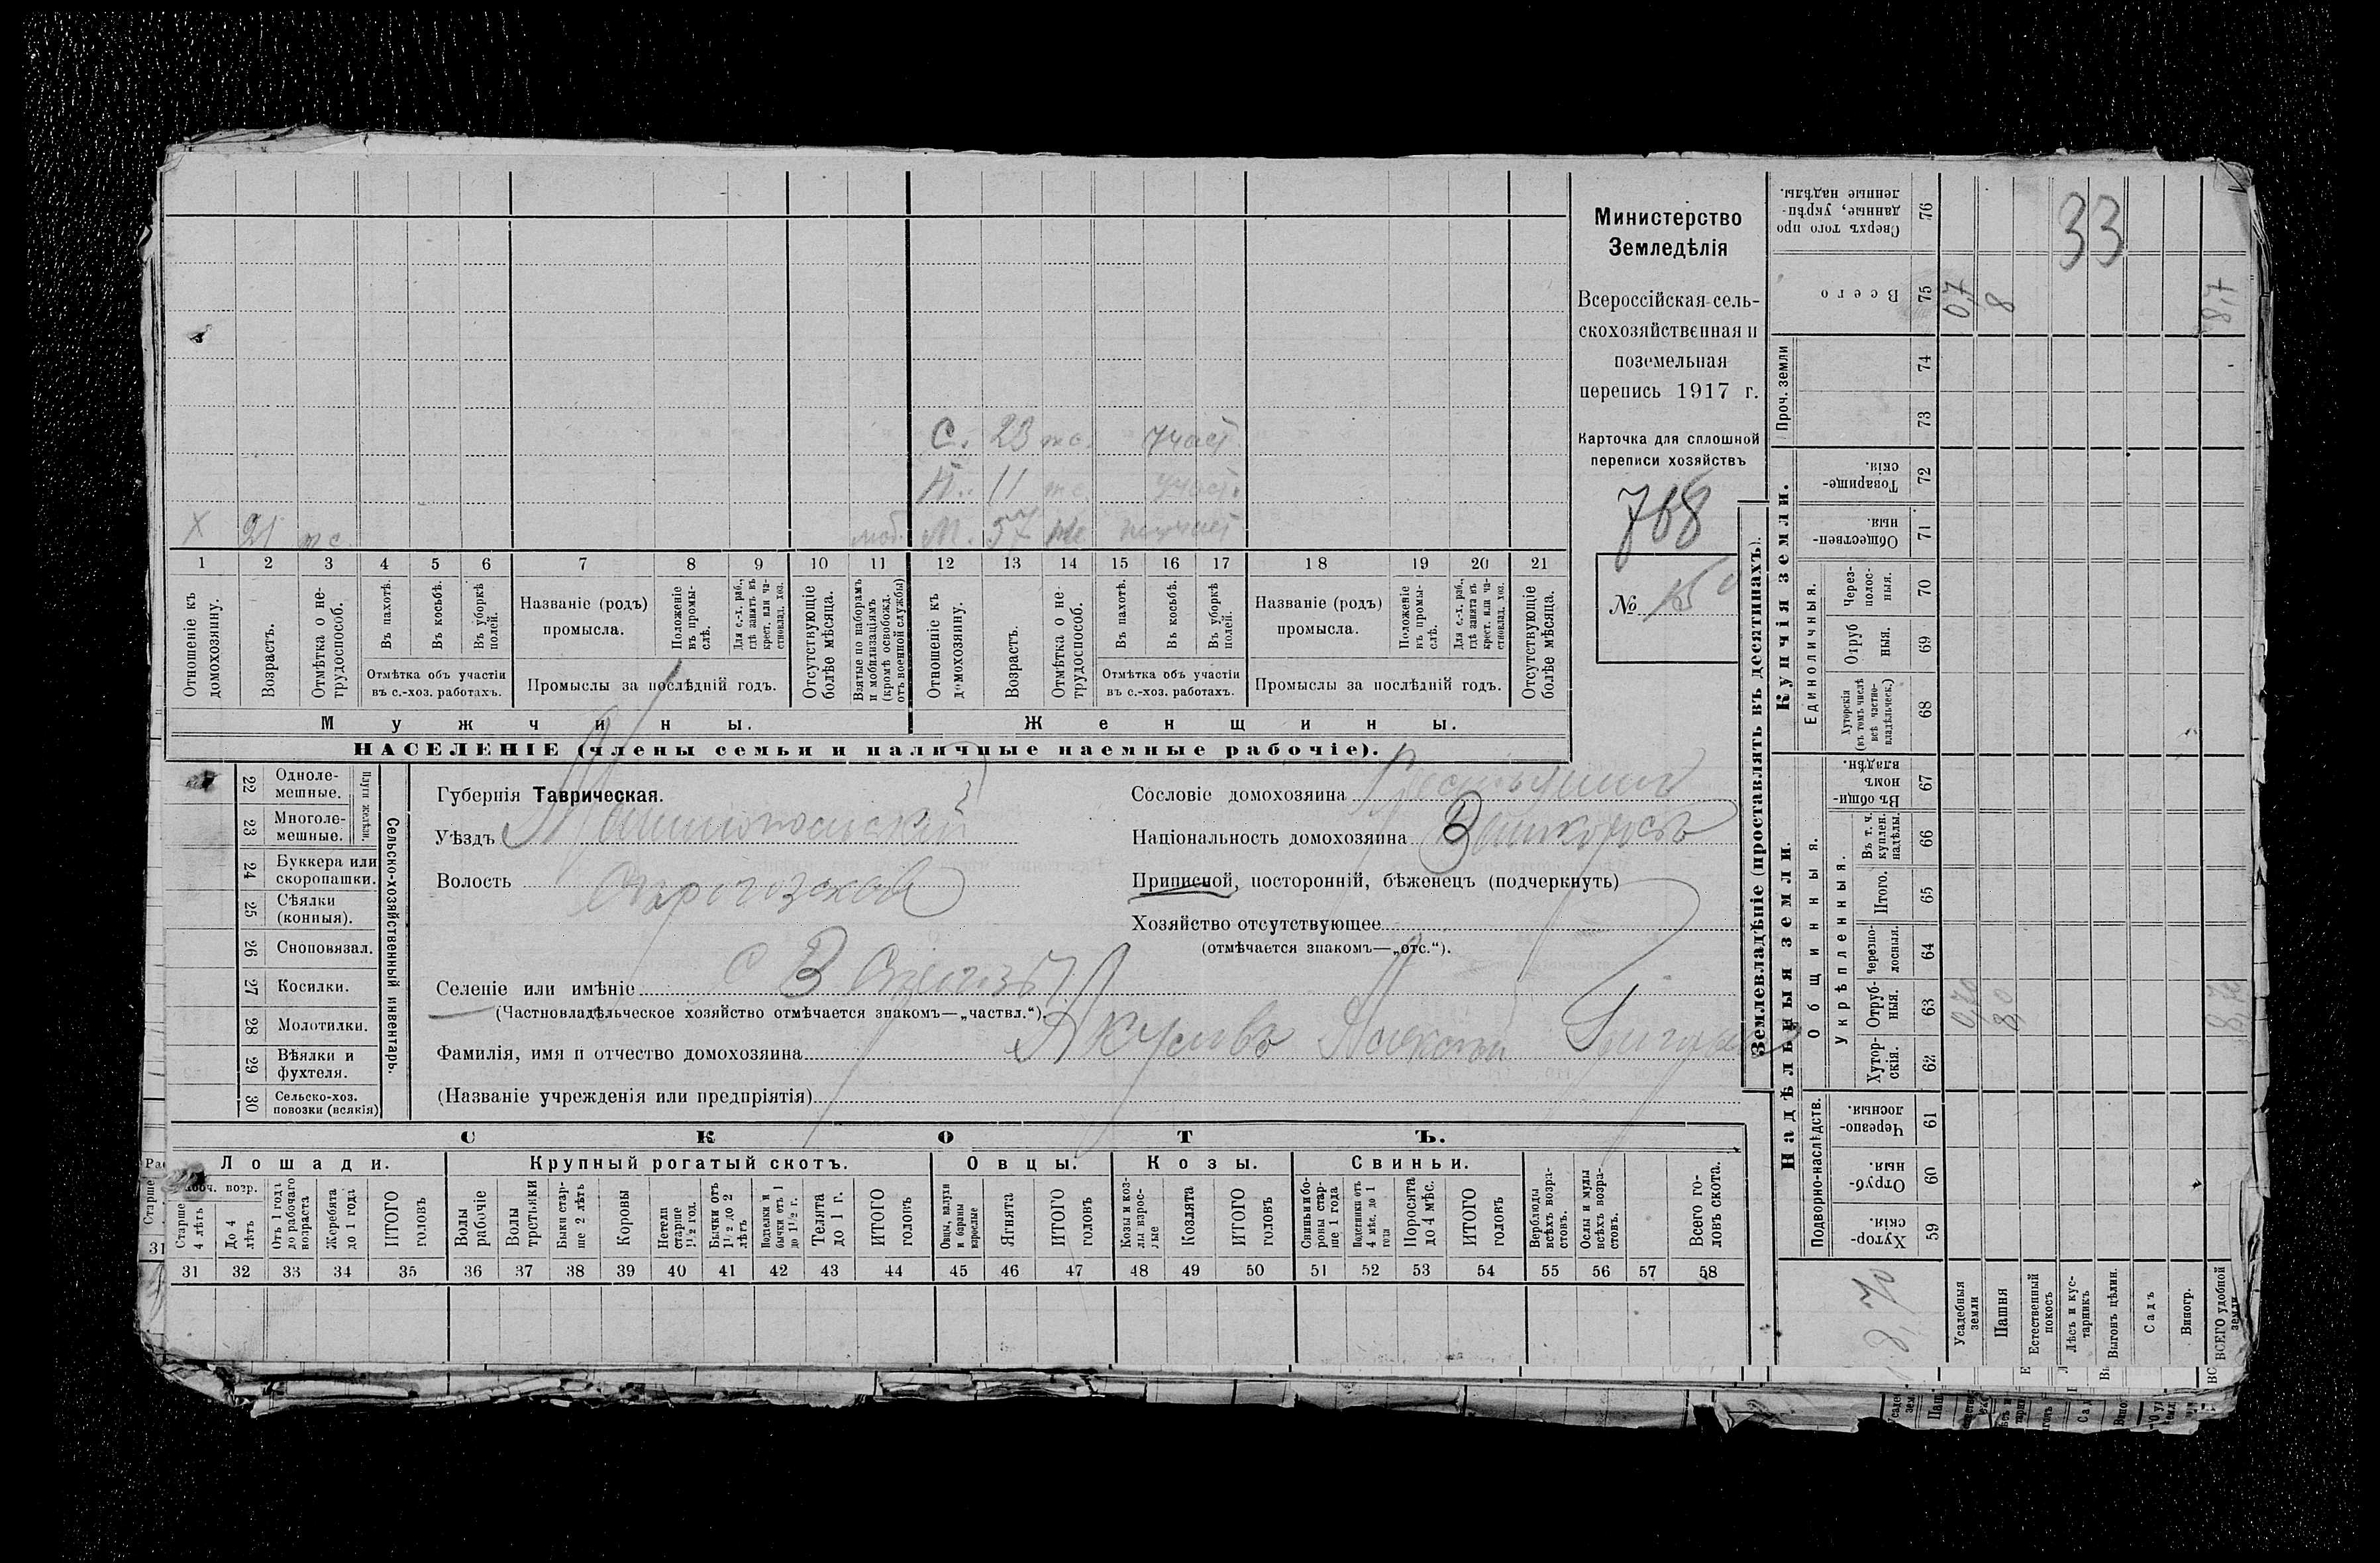 Министерство
Земледѣлія
Всероссійская сель-
скохозяйственная и
поземельная
перепись 1917 г.
Карточка для сплошной
переписи хозяйствъ
768
№
С. 23 участ.
11 участ.
Х 21 моб. М. 57
1 2 3 4 5 6 7 8 9 10 11 12 13 14 15 16 17 18 19 20 21
Отношеніе къ домохозяину.
Возрастъ.
Отмѣтка о не-трудоспособ.
Въ пахотѣ.
Въ косьбѣ.
Въ уборкѣ полей.
Отмѣтка объ участіи
въ с.-хоз. работахъ.
Названіе (родъ)
промысла.
Положеніе въ промы-слѣ.
Для с.-х. раб., гдѣ занятъ въ крест. или ча-стновлад. хоз.
Промыслы за послѣдній годъ.
Отсутствующіе болѣе мѣсяца.
Взятые по наборамъ и мобилизаціямъ (кромѣ освобожд. отъ военной службы)
Отношеніе къ домохозяину.
Возрастъ.
Отмѣтка о не-трудоспособ.
Въ пахотѣ.
Въ косьбѣ.
Въ уборкѣ полей.
Отмѣтка объ участіи
въ с.-хоз. работахъ.
Названіе (родъ)
промысла.
Положеніе въ промы-слѣ.
Для с.-х. раб., гдѣ занята въ крест. или ча-стновлад. хоз.
Промыслы за послѣдній годъ.
Отсутствующіе болѣе мѣсяца.
Мужчины. Женщины.
НАСЕЛЕНІЕ (члены семьи и наличные наемные рабочіе).
Сельско-хозяйственный инвентарь.
22 Одноле-мешные.
23 Многоле-мешные.
24 Буккера или скоропашки.
25 Сѣялки (конныя).
26 Сноповязал.
27 Косилки.
28 Молотилки.
29 Вѣялки и фухтеля.
30 Сельско-хоз. повозки (всякія)
Губернія Таврическая.
Уѣздъ Мелитопольскій
Волость
Селеніе или имѣніе с В
(Частновладѣльческое хозяйство отмѣчается знакомъ—„частвл.“).
Фамилія, имя и отчество домохозяина
(Названіе учрежденія или предпріятія)
Сословіе домохозяина
Національность домохозяина
Приписной, посторонній, бѣженецъ (подчеркнуть)
Хозяйство отсутствующее
(отмѣчается знакомъ—„отс.“).
СКОТЪ.
Лошади. Крупный рогатый скотъ. Овцы. Козы. Свиньи.
Рабоч. возр.
Старше 4 лѣтъ
До 4 лѣтъ
Отъ 1 года до рабочаго возраста
Жеребята до 1 года
ИТОГО головъ
Волы рабочіе
Волы третьяки
Быки стар-ше 2 лѣтъ
Коровы
Нетели старше 1½ год.
Бычки отъ 1½ до 2 лѣтъ
Подтелки и бычки отъ 1 до 1½ г.
Телята до 1 г.
ИТОГО головъ
Овцы, валухи и бараны взрослые
Ягнята
ИТОГО головъ
Козы и коз-лы взрос-лые
Козлята
ИТОГО головъ
Свиньи и бо-ровы стар-ше 1 года
Подсвинки отъ 4 мѣс. до 1 года
Поросята до 4 мѣс.
ИТОГО головъ
Верблюды всѣхъ возра-стовъ.
Ослы и мулы всѣхъ возра-стовъ.
Всего го-ловъ скота.
31 32 33 34 35 36 37 38 39 40 41 42 43 44 45 46 47 48 49 50 51 52 53 54 55 56 57 58
Землевладѣніе (проставлять въ десятинахъ).
Купчія земли.
Надѣльныя земли.
33
Сверхъ того про-данные, укрѣп-ленные надѣлы. 76
Всего 75 0,7 8 8,7
Проч. земли 74 73
Товарище-скія. 72
Обществен-ныя. 71
Единоличныя.
Через-полос-ныя. 70
Отруб-ныя. 69
Хуторскія (въ томъ числѣ всѣ частно-владѣльческ.) 68
Общинныя.
Въ общин-номъ владѣн. 67
Укрѣпленныя.
Въ т. ч. куплен. надѣлы. 66
Итого. 65
Черезпо-лосныя. 64
Отруб-ныя. 63 0,70 8,0 8,70
Хутор-скія. 62
Подворно-наслѣдств.
Черезпо-лосныя. 61
Отруб-ныя. 60
Хутор-скія. 59
8,70
Усадебныя земли
Пашня
Естественный покосъ
Лѣсъ и кус-тарникъ
Выгонъ цѣлин.
Садъ
Виногр.
ВСЕГО удобной земли